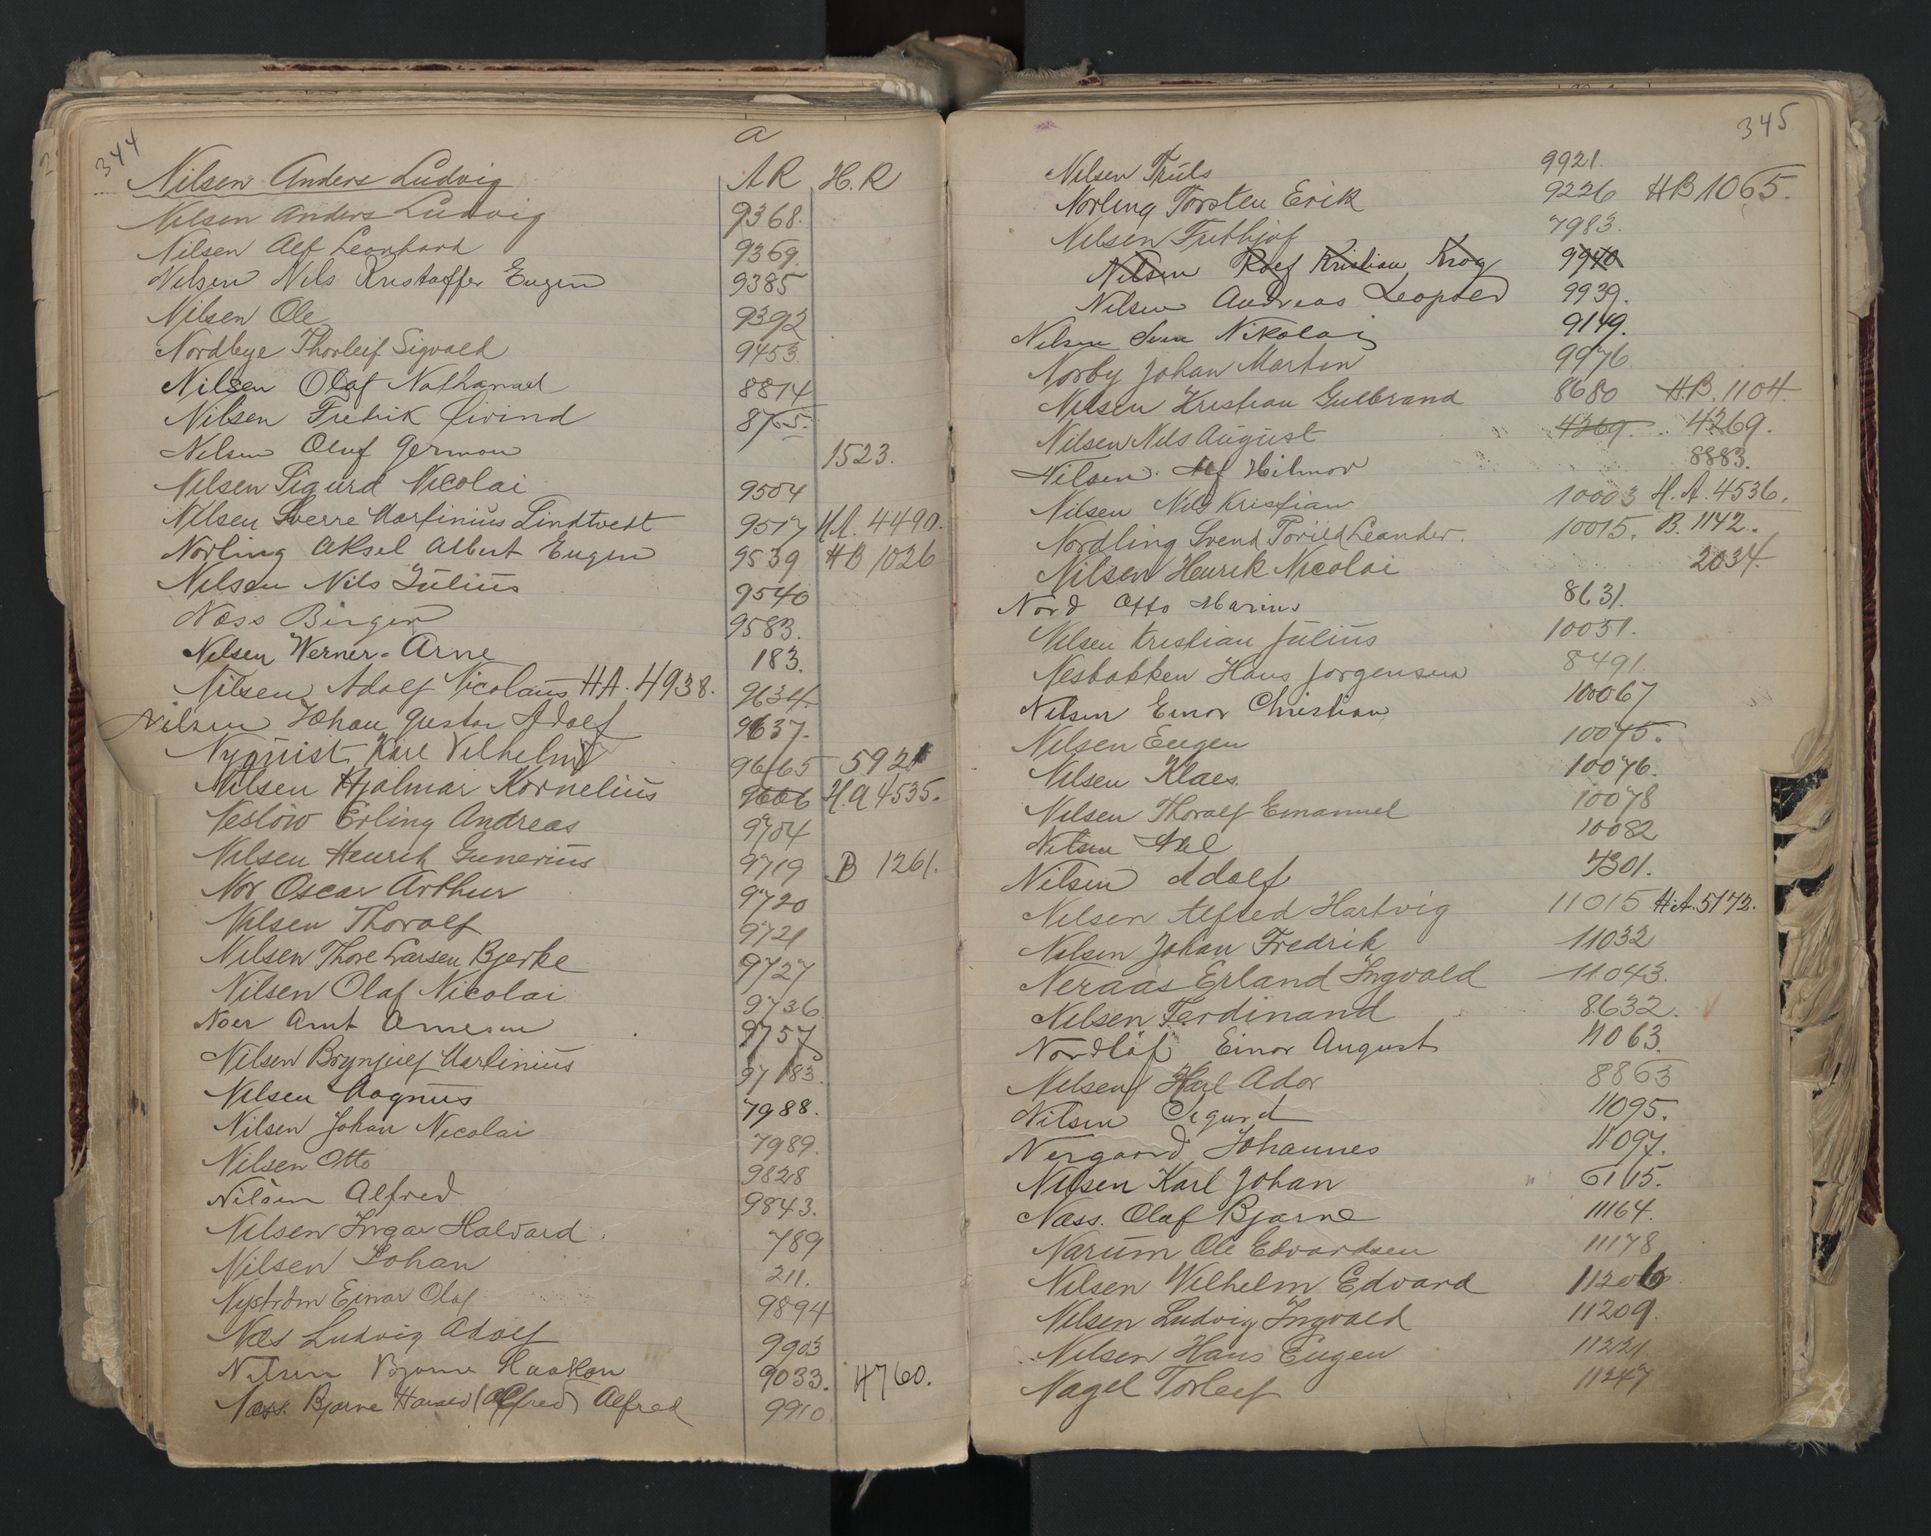 344
a
Nilsen Anders Ludvig A R H. R
Nilsen Anders Ludvig 9368.
Nilsen Alf Leonhard 9369.
Nilsen Nils Kristoffer Eugen 9385
Nilsen Ole 9392
Nordbye Thorleif Sigvald 9453
Nilsen Olaf Nathanael 8814
Nilsen Fredrik Øivind 8765.
Nilsen Oluf German 1523.
Nilsen Sigurd Nicolai 9504
Nilsen Sverre Martinius Lindtvedt 9517 H.A. 4490.
Norling Aksel Albert Eugen 9539 HB 1026
Nilsen Nils Julius 9540
Næss Birger 9583.
Nilsen Werner-Arne 183.
Nilsen Adolf Nicolaus HA. 4938. 9634.
Nilsen Johan Gustav Adolf 9637.
Nyquist Karl Vilhelm 9665 5921
Nilsen Hjalmar Kornelius 9666 H.A 4535.
Neslöw Erling Andreas 9704
Nilsen Henrik Gunerius 9719 B 1261.
Nor Oscar Arthur 9720
Nilsen Thoralf 9721
Nilsen Thore Larsen Bjerke 9727
Nilsen Olaf Nicolai 9736
Noer Arnt Arnesen 9757
Nilsen Brynjulf Martinius 97183.
Nilsen Magnus 7988.
Nilsen Johan Nicolai 7989.
Nilsen Otto 9828
Nilsen Alfred 9843.
Nilsen Ingar Halvard. 789
Nilsen Johan 211.
Nyström Einar Olaf 9894
Næs Ludvig Adolf 9903
Nilsen Bjarne Haakon 9033. 4760.
Næss. Bjarne Harald (Alfred) Alfred 9910
345
Nilsen Truls 9921.
Norling Torsten Erik 9226 HB 1065.
Nilsen Frithjof 7983.
Nilsen Rolf Kristian Krog 9940
Nilsen Andreas Leopold 9939.
Nilsen Nikolai 9149.
Norby Johan Martin 9976.
Nilsen Kristian Gulbrand 8680 H.B. 1104.
Nilsen Nils August 4269. 4269.
Nilsen Alf Hilmar 8883.
Nilsen Nils Kristian 10003 H.A. 4536.
Nordling Svend Torild Leander. 10015. B. 1142.
Nilsen Henrik Nicolai 2034.
Nord Otto Marius 8631.
Nilsen Kristian Julius 10051.
Nesbakken Hans Jørgensen 8491.
Nilsen Einar Christian 10067
Nilsen Eugen 10075.
Nilsen Klaes 10076.
Nilsen Thoralf Emanuel 10078
Nilsen Axel 10082
Nilsen Adolf 7301.
Nilsen Alfred Hartvig 11015 H.A. 5172.
Nilsen Johan Fredrik 11032
Neraas Erland Ingvald 11043.
Nilsen Ferdinand 8632.
Nordlöf Einar August 11063.
Nilsen Karl Ador 8863
Nilsen Sigurd 11095.
Nergaard Johannes 11097.
Nilsen Karl Johan " 6115.
Næss. Olaf Bjarne 11164.
Narum Ole Edvardsen 11178
Nilsen Wilhelm Edvard 11206
Nilsen Ludvig Ingvald 11209.
Nilsen Hans Eugen 11221
Nagel Torleif 11247